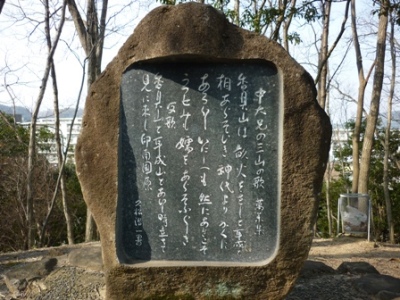 中大兄の三山の歌 萬葉集
香具山は 畝火ををしと 耳成と
相あらそひき 神代より かくに
あるらし いにしへも 然にあれこそ
うつせみも 嬬を あらそふらしき
反歌
香具山と耳成山とあひし時立ちて
見に来し印南國原
久松潜一書